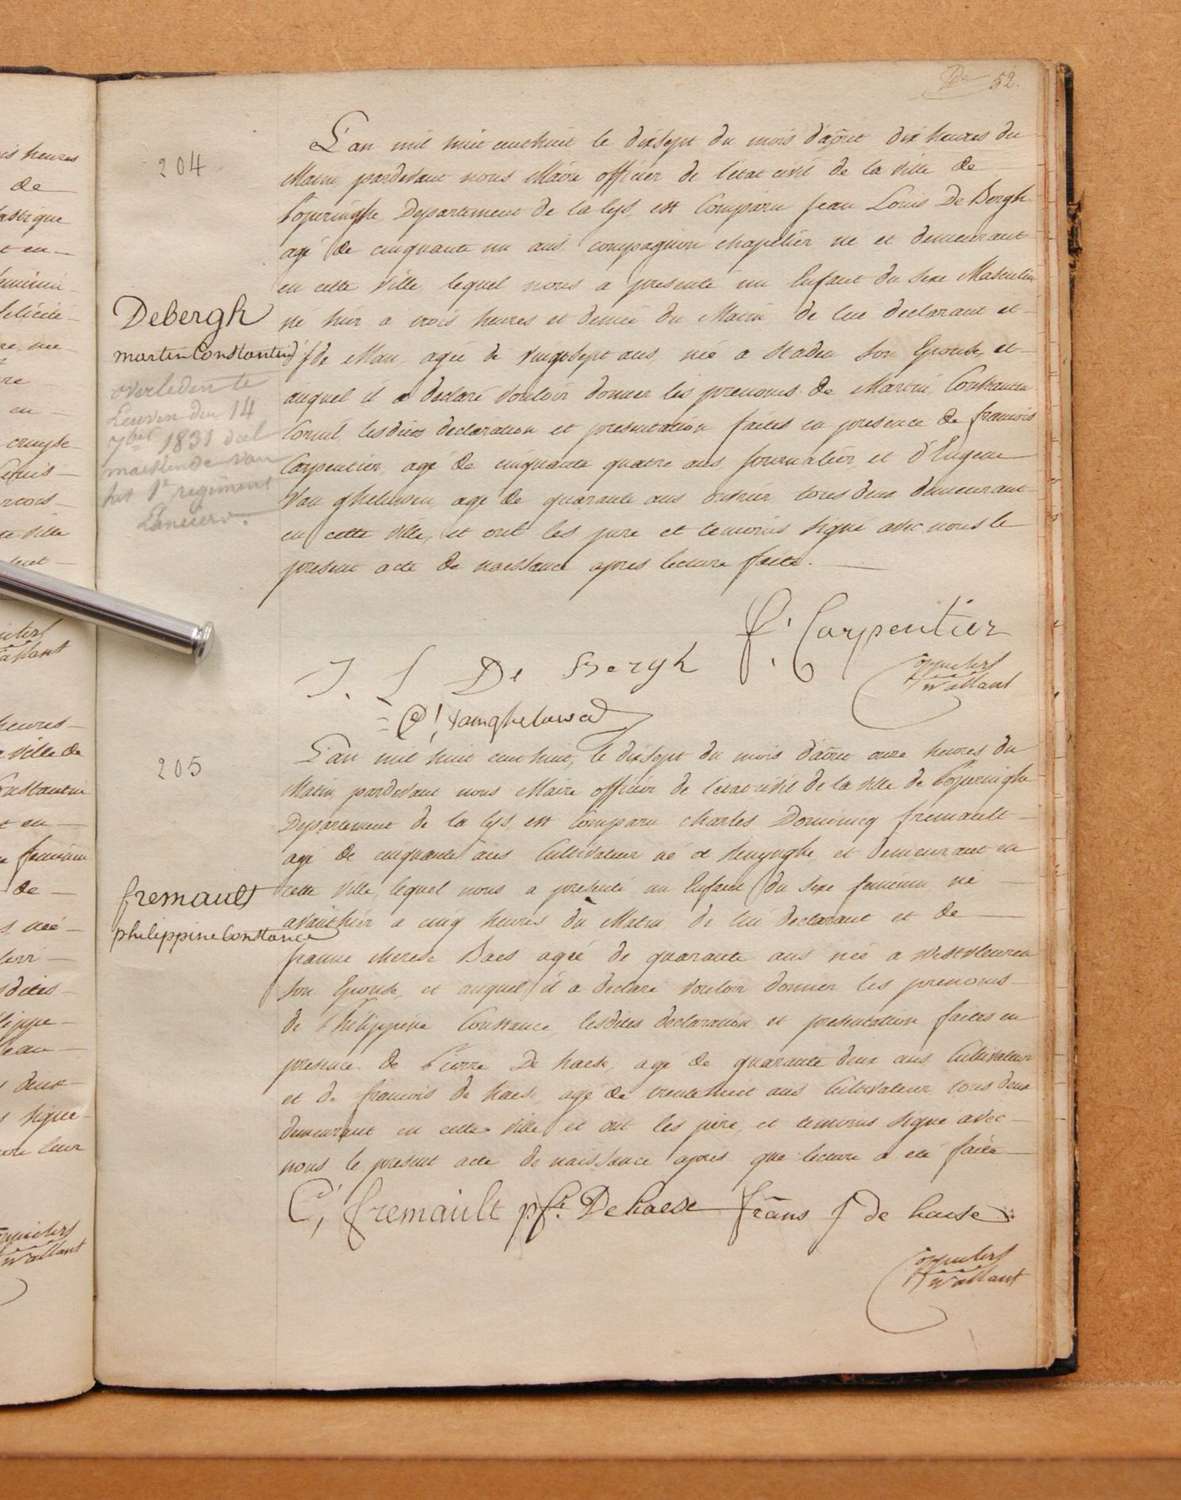 52.
204
L'an mil huit cent huit le dixsept du mois d'aôut dix heures du
Matin pardevant nous Maire officier de l'état civil de la ville de
Poperinghe Departement de la Lys, est Comparu Jean Louis De Bergh
agé de cinquante un ans compagnion chapelier né et demeurant
en cette ville lequel nous a presenté un Enfant du sexe Masculin
né hier a trois heures et demie du Matin de lui declarant et
de Man, agée de vingtsept ans, née a Staden son Epouse, et
auquel il a declaré vouloir donner les prenoms de Martin Constantin
Cornil, lesdites declaration et presentation faites en presence de francois
Carpentier, agé de cinquante quatre ans, journalier et d'Eugene
Van ghelüwen agé de quarante ans ouvrier tous deux demeurant
en cette ville, et ont les pere et temoins signé avec nous le
present acte de naissance apres lecture faite.
Debergh
martin Constantin
overleden te
Leuven den 14
7ber 1831
van
het 1e regiment
Lanciers.
f. Carpentier
J. L De Bergh
Vallant
205
L'an mil huit cent huit, le dixsept du mois d'aôut onze heures du
Matin pardevant nous Maire officier de l'état civil de la ville de Poperinghe
Departement de la Lys, est Comparu Charles Dominicq fremault
agé de cinquante ans Cultivateur né a et demeurant en
cette ville, lequel nous a presenté un Enfant du sexe feminin né
avanthier a cinq heures du Matin de lui declarant et de
Therese Baes agée de quarante ans née a Westvleteren
son Epouse, et auquel il a declaré vouloir donner les prenoms
de Philippine Constance, lesdites declaration et presentation faites en
presence de Pierre De haese, agé de quarante deux ans Cultivateur
et de francois de haese, agé de trentehuit ans Cultivateur tous deux
demeurant en cette ville, et ont les père, et temoins signé avec
nous le present acte de naissance apres que lecture a été faite
fremault
philippine Constance
C, fremault De haese frans J de haese
Vallant